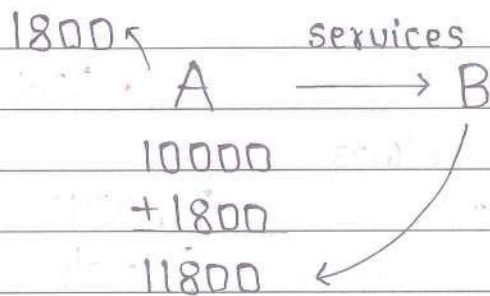 1800 services
A B
10000
+1800
11800